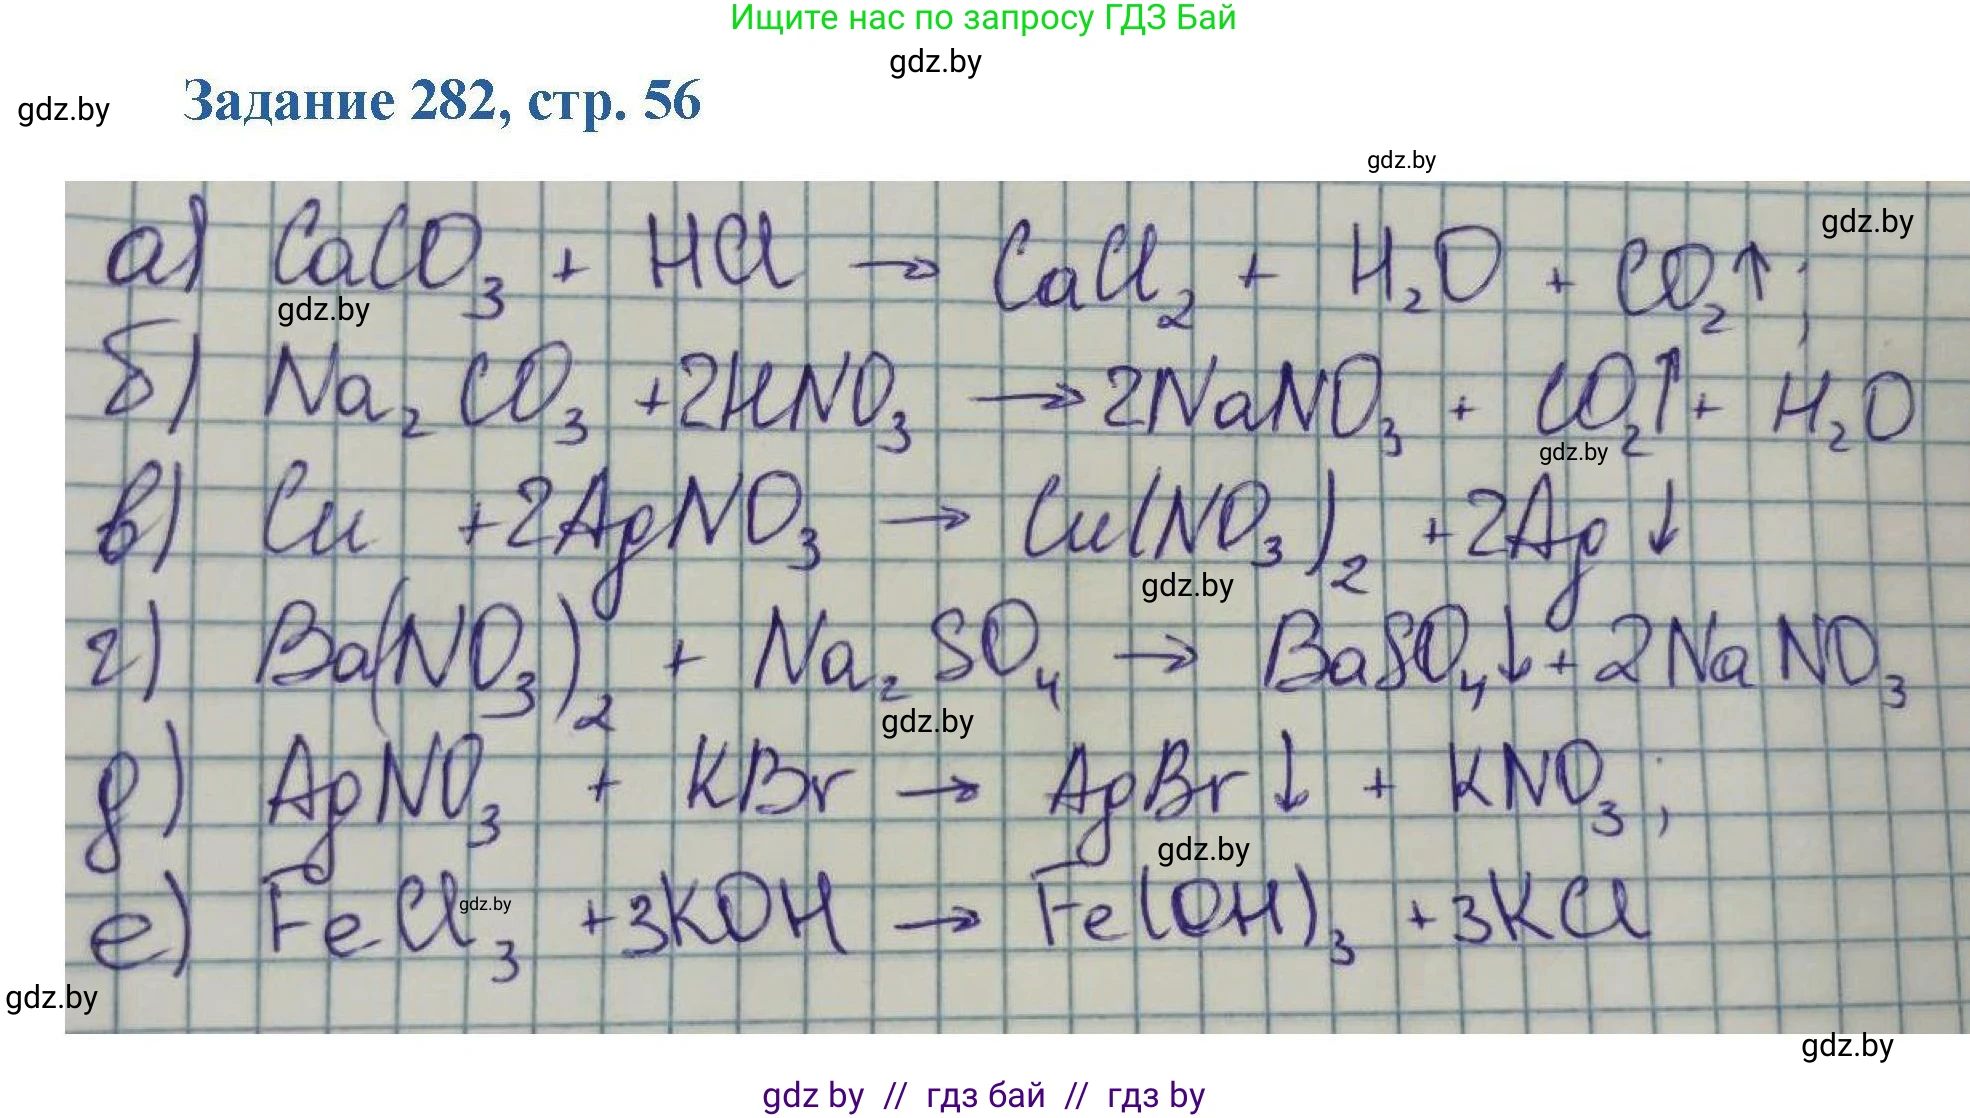 Ищите нас по запросу ГДЗ Бай
gdz.by
gdz.by
Задание 282, стр. 56
gdz.by
gdz.by
а) CaCO₃ + HCl → CaCl₂ + H₂O + CO₂↑;
gdz.by
б) Na₂CO₃ + 2HNO₃ → 2NaNO₃ + CO₂↑ + H₂O
gdz.by
в) Cu + 2AgNO₃ → Cu(NO₃)₂ + 2Ag↓
gdz.by
г) Ba(NO₃)₂ + Na₂SO₄ → BaSO₄↓ + 2NaNO₃
gdz.by
д) AgNO₃ + KBr → AgBr↓ + KNO₃;
gdz.by
е) FeCl₃ + 3KOH → Fe(OH)₃ + 3KCl
gdz.by
gdz.by
gdz.by
gdz by // гдз бай // гдз by